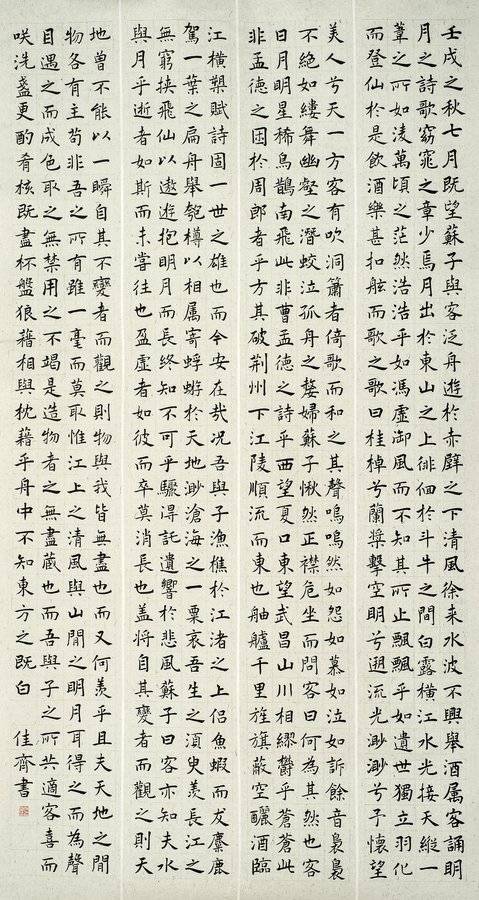 壬戌之秋七月既望蘇子與客泛舟遊於赤壁之下清風徐来水波不興舉酒属客誦明
月之詩歌窈窕之章少焉月出於東山之上徘徊於斗牛之間白露横江水光接天縱一
葦之所如凌萬頃之茫然浩浩乎如馮虛御風而不知其所止飄飄乎如遺世獨立羽化
而登仙於是飲酒樂甚扣舷而歌之歌曰桂棹兮蘭槳擊空明兮遡流光渺渺兮予懷望
美人兮天一方客有吹洞簫者倚歌而和之其聲嗚嗚然如怨如慕如泣如訴餘音裊裊
不絕如縷舞幽壑之潛蛟泣孤舟之嫠婦蘇子愀然正襟危坐而問客曰何為其然也客
曰月明星稀烏鵲南飛此非曹孟德之詩乎西望夏口東望武昌山川相繆鬱乎蒼蒼此
非孟德之困於周郎者乎方其破荆州下江陵順流而東也舳艫千里旌旗蔽空釃酒臨
江横槊賦詩固一世之雄也而今安在哉況吾與子漁樵於江渚之上侣魚蝦而友麋鹿
駕一葉之扁舟舉匏樽以相属寄蜉蝣於天地渺滄海之一粟哀吾生之須臾羨長江之
無窮挟飛仙以遨遊抱明月而長終知不可乎驟得託遺響於悲風蘇子曰客亦知夫水
與月乎逝者如斯而未嘗往也盈虛者如彼而卒莫消長也盖將自其變者而觀之則天
地曾不能以一瞬自其不變者而觀之則物與我皆無盡也而又何羨乎且夫天地之間
物各有主苟非吾之所有雖一毫而莫取惟江上之清風與山間之明月耳得之而為聲
目遇之而成色取之無禁用之不竭是造物者之無盡藏也而吾與子之所共適客喜而
咲洗盞更酌肴核既盡杯盤狼藉相與枕藉乎舟中不知東方之既白 佳齊書